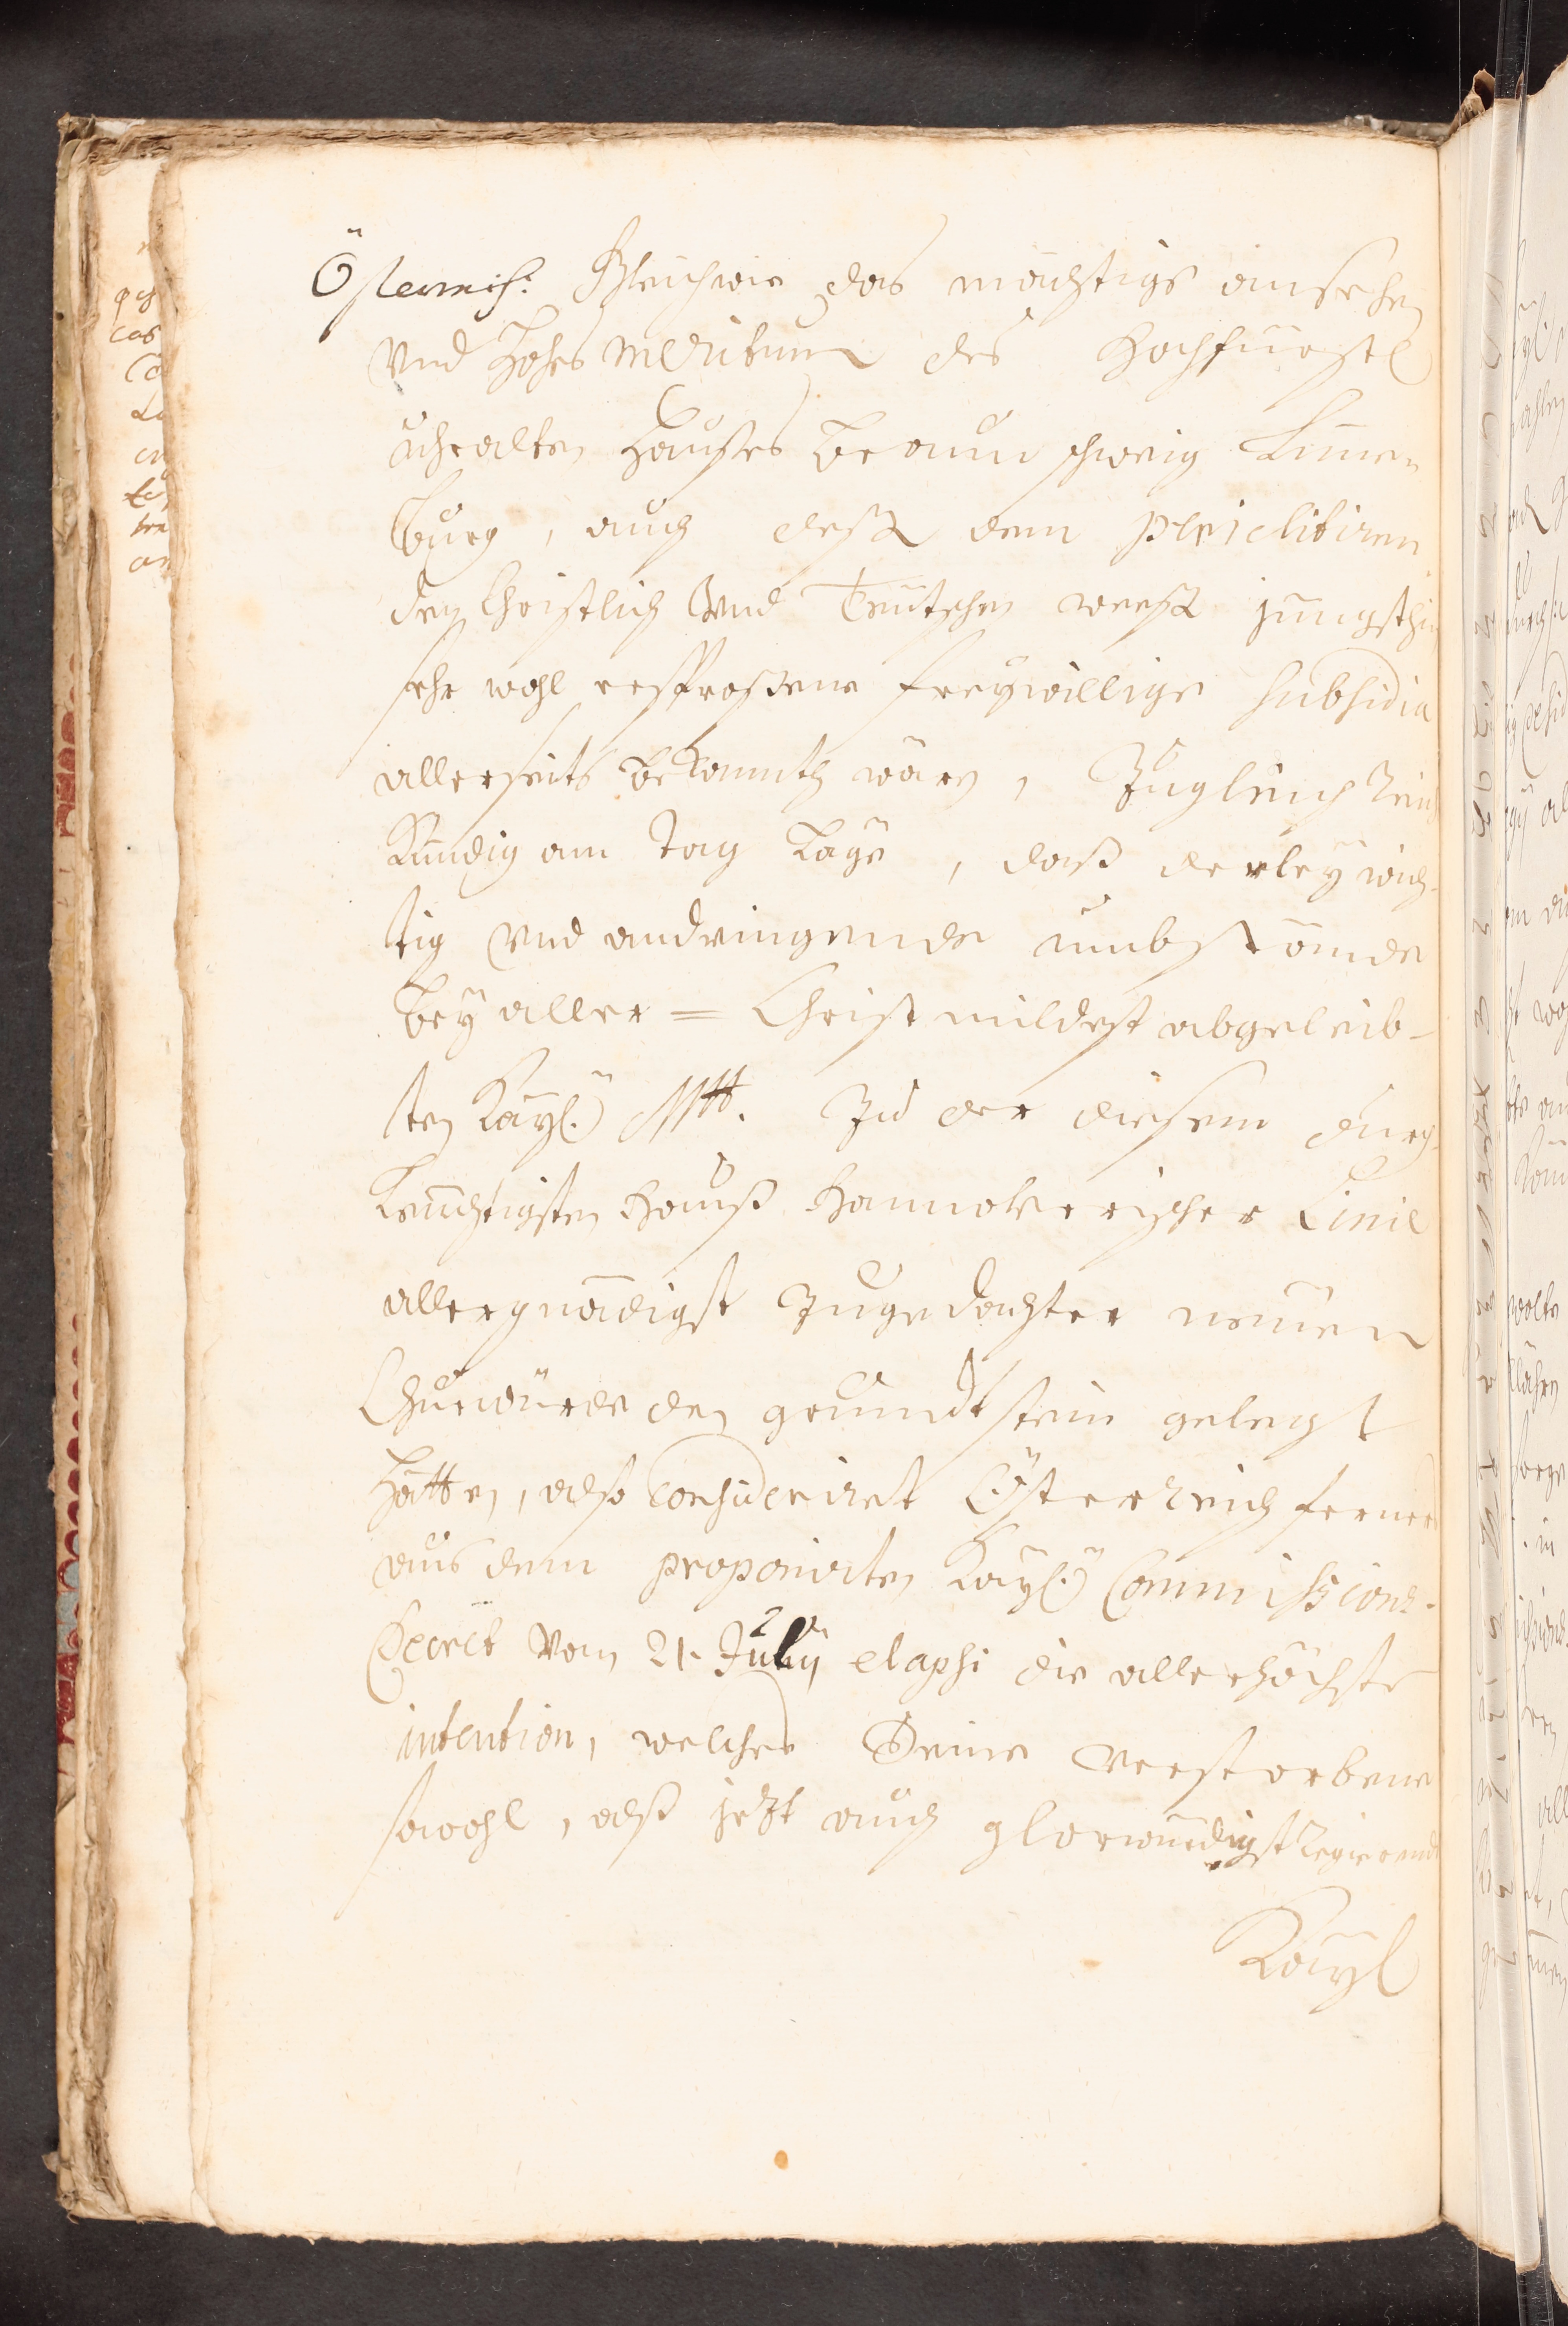 Österreich: Gleichwie das mächtige ansehen
vnd Hohes meritum des Hochfürstl
uhralten Haußes Braunschweig Lünen
burg, auch deßen dem periclitiren
den Christlich Vnd Teutschen weeßen jüngsthin
sehr wohl ersproßene freywillige subsidia
allerseits bekannth wären, Zugleich Reich
Kündig am tag läge, daß derley wich-
tig vnd andringende umbstände
bey aller = Christmildest abgeleib-
ten Kayl. Mtt. Zu der diesem durch
leüchtigsten Hauß Hannoverischer Linie
allergnädigst zugedachter neuen
Churwürde den grundtstein gelegt
hätten, also Consideriret Österreich ferner
aus dem proponirten Kayl. Commissions-
Decret vom 21. July elapsi die allerhöchste
intention, welche Seine verstorbene
sowohl, alß jezt auch glorwürdigst Regierendt
Kayl